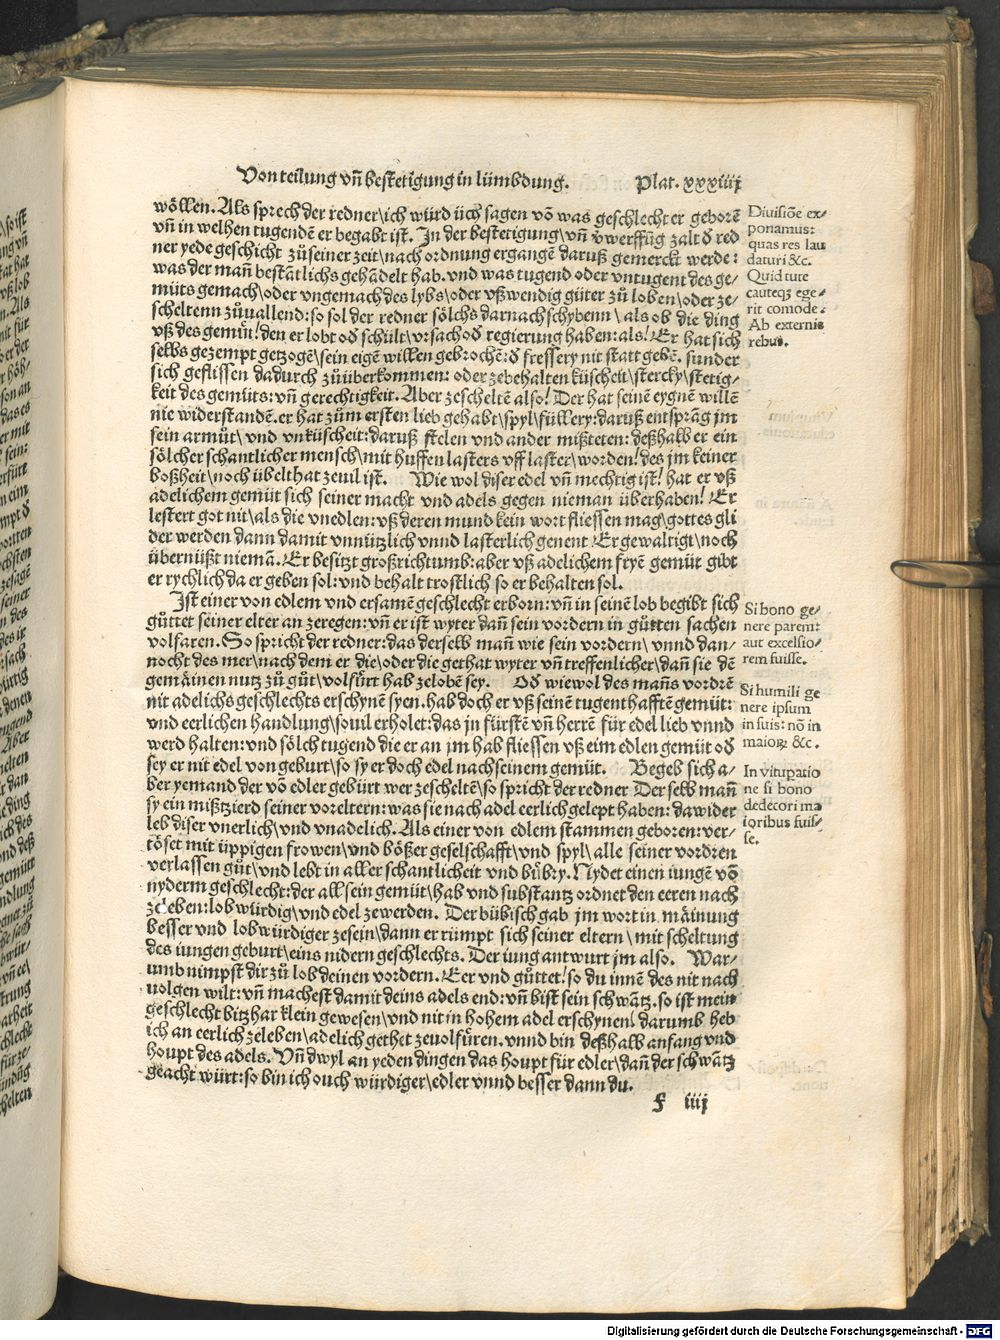 Von teilung vñ bestetigung in lümbdung. Plat. xxxiiij
wöllen. Als sprech der redner\ich würd üch sagen võ was geschlecht er geborẽ
vñ in welhen tugendẽ er begabt ist. In der bestetigung\vñ v̄werffũg zalt d̄ red
ner yede geschicht zůseiner zeit\nach ordnung ergangẽ daruß gemerckt werde:
was der mañ bestãtlichs gehãdelt hab. vnd was tugend oder vntugent des ge-
müts gemach\oder vngemach des lybs\oder vßwendig güter zů loben\oder ze-
scheltenn zůuallend: so sol der redner sölchs darnach schybenn\als ob die ding
vß des gemüt! den er lobt od̄ schült\vrsach od̄ regierung haben: als! Er hat sich
selbs gezempt getzogẽ\sein eigẽ willen gebrochẽ: d̄ fressery nit statt gebẽ. sunder
sich geflissen dadurch zůüberkommen: oder zebehalten küscheit\stercky\stetig-
keit des gemüts: vñ gerechtigkeit. Aber zescheltẽ also! Der hat seinẽ eygnẽ willẽ
nie widerstandẽ. er hat zům ersten lieb gehabt\spyl\füllery: daruß entsprãg jm
sein armůt\vnd vnküscheit: daruß stelen vnd ander mißteten: deßhalb er ein
sölcher schantlicher mensch\mit huffen lasters vff laster\worden! des jm keiner
boßheit\noch übelthat zeuil ist. Wie wol diser edel vñ mechtig ist! hat er vß
adelichem gemüt sich seiner macht vnd adels gegen nieman überhaben! Er
lestert got nit\als die vnedlen: vß deren mund kein wort fliessen mag\gottes gli
der werden dann damit vnnützlich vnnd lasterlich genent Er gewaltigt\noch
übernüßt niemã. Er besitzt großrichtumb: aber vß adelichem fryẽ gemüt gibt
er rychlich da er geben sol: vnd behalt trostlich so er behalten sol.
Ist einer von edlem vnd ersamẽ geschlecht erborn: vñ in seinẽ lob begibt sich
gůttet seiner elter an zeregen: vñ er ist wyter dañ sein vordern in gůtten sachen
volfaren. So spricht der redner: das derselb mañ wie sein vordern\vnnd dan-
nocht des mer\nach dem er die\oder die gethat wyter vñ treffenlicher\dañ sie dẽ
gemäinen nutz zů gůt\volfürt hab zelobẽ sey. Od̄ wiewol des mañs vordrẽ
nit adelichs geschlechts erschynẽ syen. hab doch er vß seinẽ tugenthafftẽ gemüt:
vnd eerlichen handlung\souil erholet: das jn fürstẽ vñ herrẽ für edel lieb vnnd
werd halten: vnd sölch tugend die er an jm hab fliessen vß eim edlen gemüt od̄
sey er nit edel von geburt\so sy er doch edel nach seinem gemüt. Begeb sich a-
ber yemand der võ edler gebürt wer zescheltẽ\so spricht der redner Der selb mañ
sy ein mißtzierd seiner voreltern: was sie nach adel eerlich gelept haben: dawider
leb diser vnerlich\vnd vnadelich. Als einer von edlem stammen geboren: ver-
töset mit üppigen frowen\vnd bößer geselschafft\vnd spyl\alle seiner vordren
verlassen gůt\vnd lebt in aller schantlicheit vnd bůbry. Nydet einen iungẽ võ
nyderm geschlecht: der all sein gemüt\hab vnd substantz ordnet den eeren nach
zeleben: lobwürdig\vnd edel zewerden. Der bübisch gab jm wort in mäinung
besser vnd lobwürdiger zesein\dann er rümpt sich seiner eltern\mit scheltung
des iungen geburt\eins nidern geschlechts. Der iung antwurt jm also. War-
umb nimpst dir zů lob deinen vordern. Eer vnd gůttet! so du innẽ des nit nach
uolgen wilt: vñ machest damit deins adels end: vñ bist sein schwãtz. so ist mein
geschlecht bitzhar klein gewesen\vnd nit in hohem adel erschynen! darumb heb
ich an eerlich zeleben\adelich gethet zeuolfüren. vnnd bin deßhalb anfang vnd
houpt des adels. Vñ dwyl an yeden dingen das houpt für edler\dañ der schwãtz
geacht würt: so bin ich ouch würdiger\edler vnnd besser dann du.
f iiij
Diuisiõe ex-
ponamus:
quas res lau
daturi &c.
Quid tute
cauteqʒ ege-
rit comode.
Ab externis
rebus.
Si bono ge-
nere parem:
aut excelsio-
rem fuisse.
Si humili ge
nere ipsum
in suis: nõ in
maioꝝ &c.
In vitupatio
ne si bono
dedecori ma
ioribus fuis-
se.
Digitalisierung gefördert durch die Deutsche Forschungsgemeinschaft - DFG